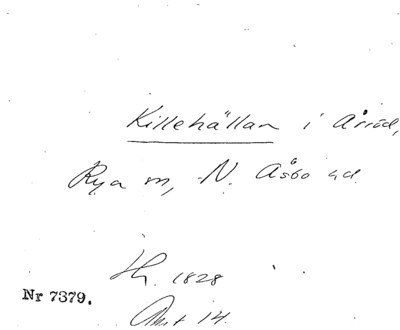 Killehällan i Årröd,
Rya sn, N. Åsbo hd.
Hy. 1828
Nr 7379.
Akt 14.